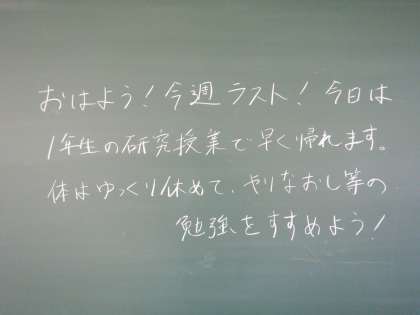 おはよう!今週ラスト!今日は
1年生の研究授業で早く帰れます。
体はゆっくり休めて、やりなおし等の
勉強をすすめよう!